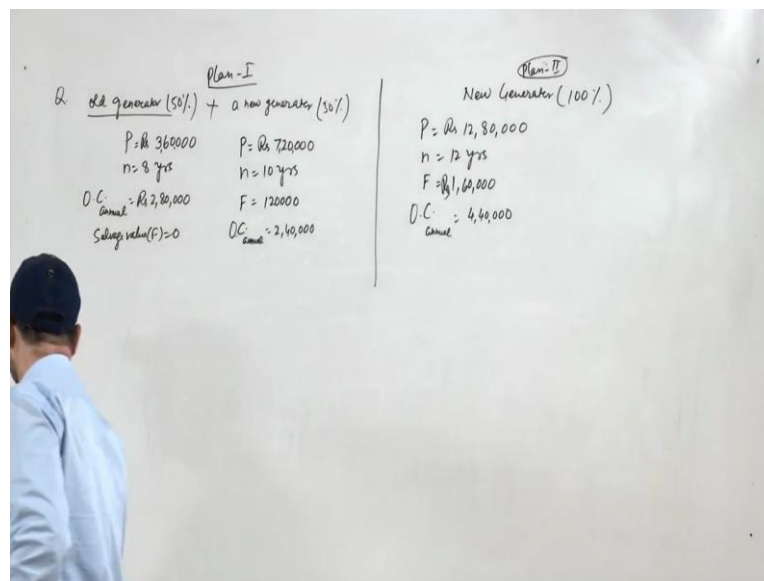 Plan-I
Q. old generator (50%) + a new generator (50%)
P = Rs 3,60,000
n = 8 yrs
O.C. annual = Rs 2,80,000
Salvage value (F) = 0
P = Rs 7,20,000
n = 10 yrs
F = 120000
O.C. annual = 2,40,000
Plan-II
New Generator (100%)
P = Rs 12,80,000
n = 12 yrs
F = Rs 1,60,000
O.C. annual = 4,40,000